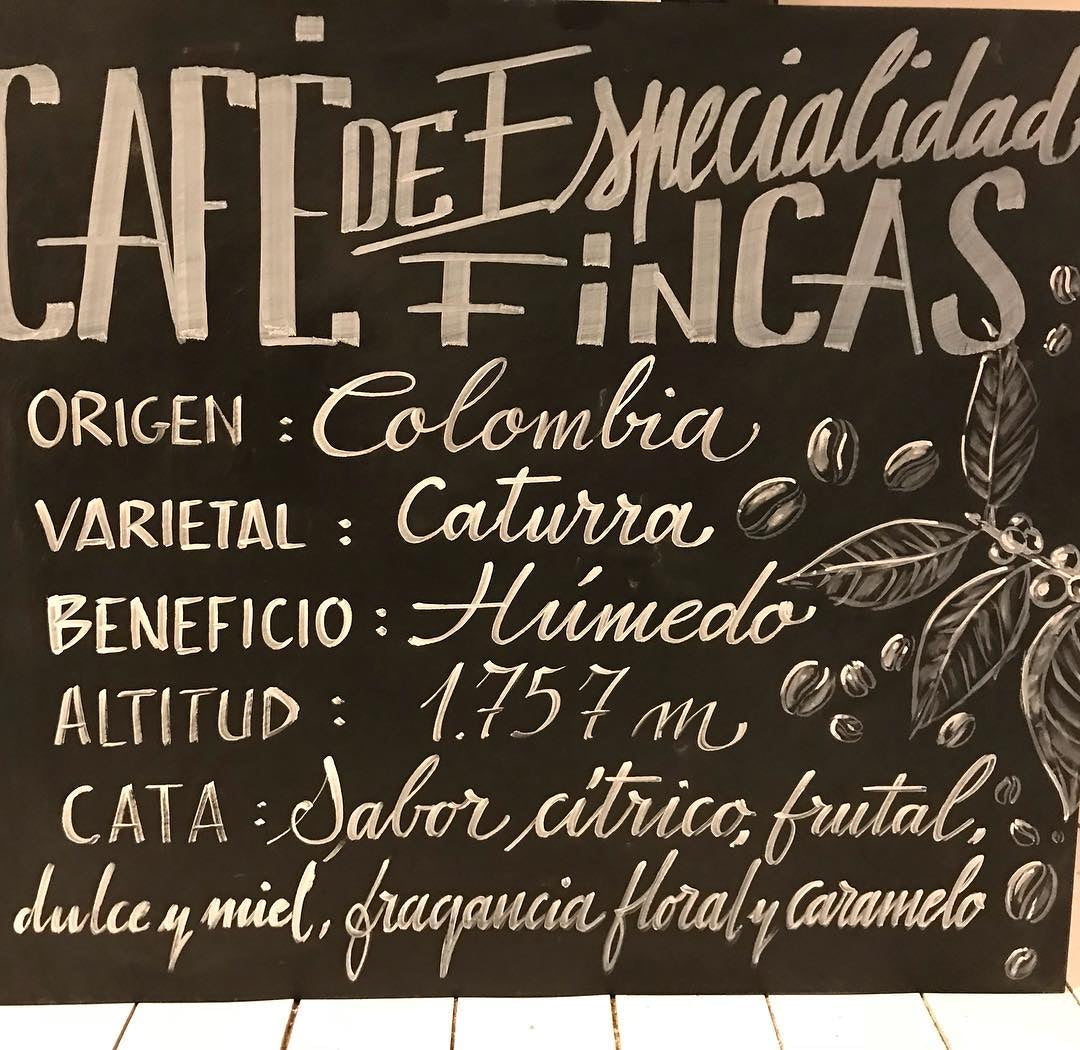 CAFÉ DE Especialidad
FiNCAS
ORIGEN : Colombia
VARIETAL : Caturra
BENEFICIO : Húmedo
ALTITUD : 1.757 m
CATA : Sabor cítrico, frutal,
dulce y miel, fragancia floral y caramelo